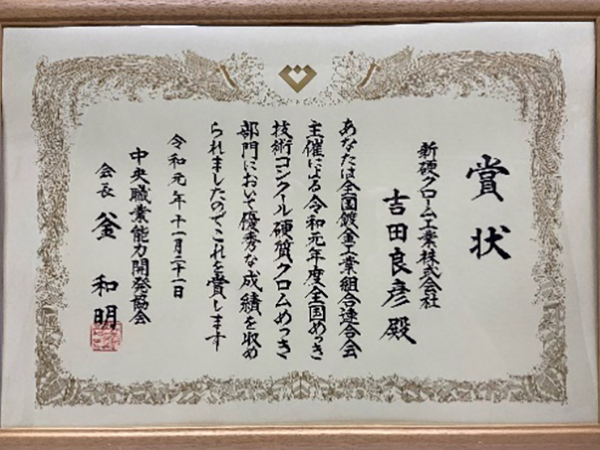 賞状
新硬クローム工業株式会社
吉田良彦殿
あなたは全国鍍金工業組合連合会
主催による令和元年度全国めっき
技術コンクール硬質クロムめっき
部門において優秀な成績を収め
られましたのでこれを賞します
令和元年十一月二十一日
中央職業能力開発協会
会長 釜 和明